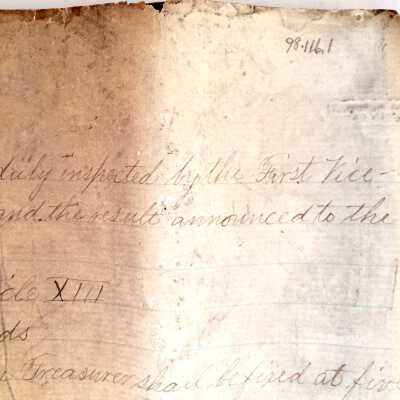 98.116.1
duly inspected by the First Vice-
and the result announced to the
cle XIII
ds
Treasurer shall be fixed at five